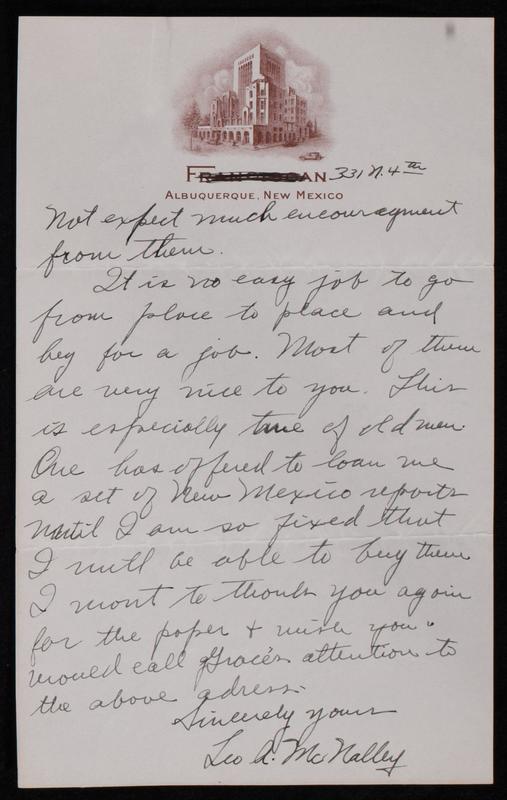 Franciscan 331 N. 4th
Albuquerque, New Mexico
Not expect much encouragment
from them.
It is no easy job to go
from place to place and
beg for a job. Most of them
are very nice to you. This
is especially true of old men.
One has offered to loan me
a set of New Mexico reports
until I am so fixed that
I will be able to buy them
I want to thank you again
for the paper & wish you
would call Grace's attention to
the above adress.
Sincerely yours
Leo A. McNalley